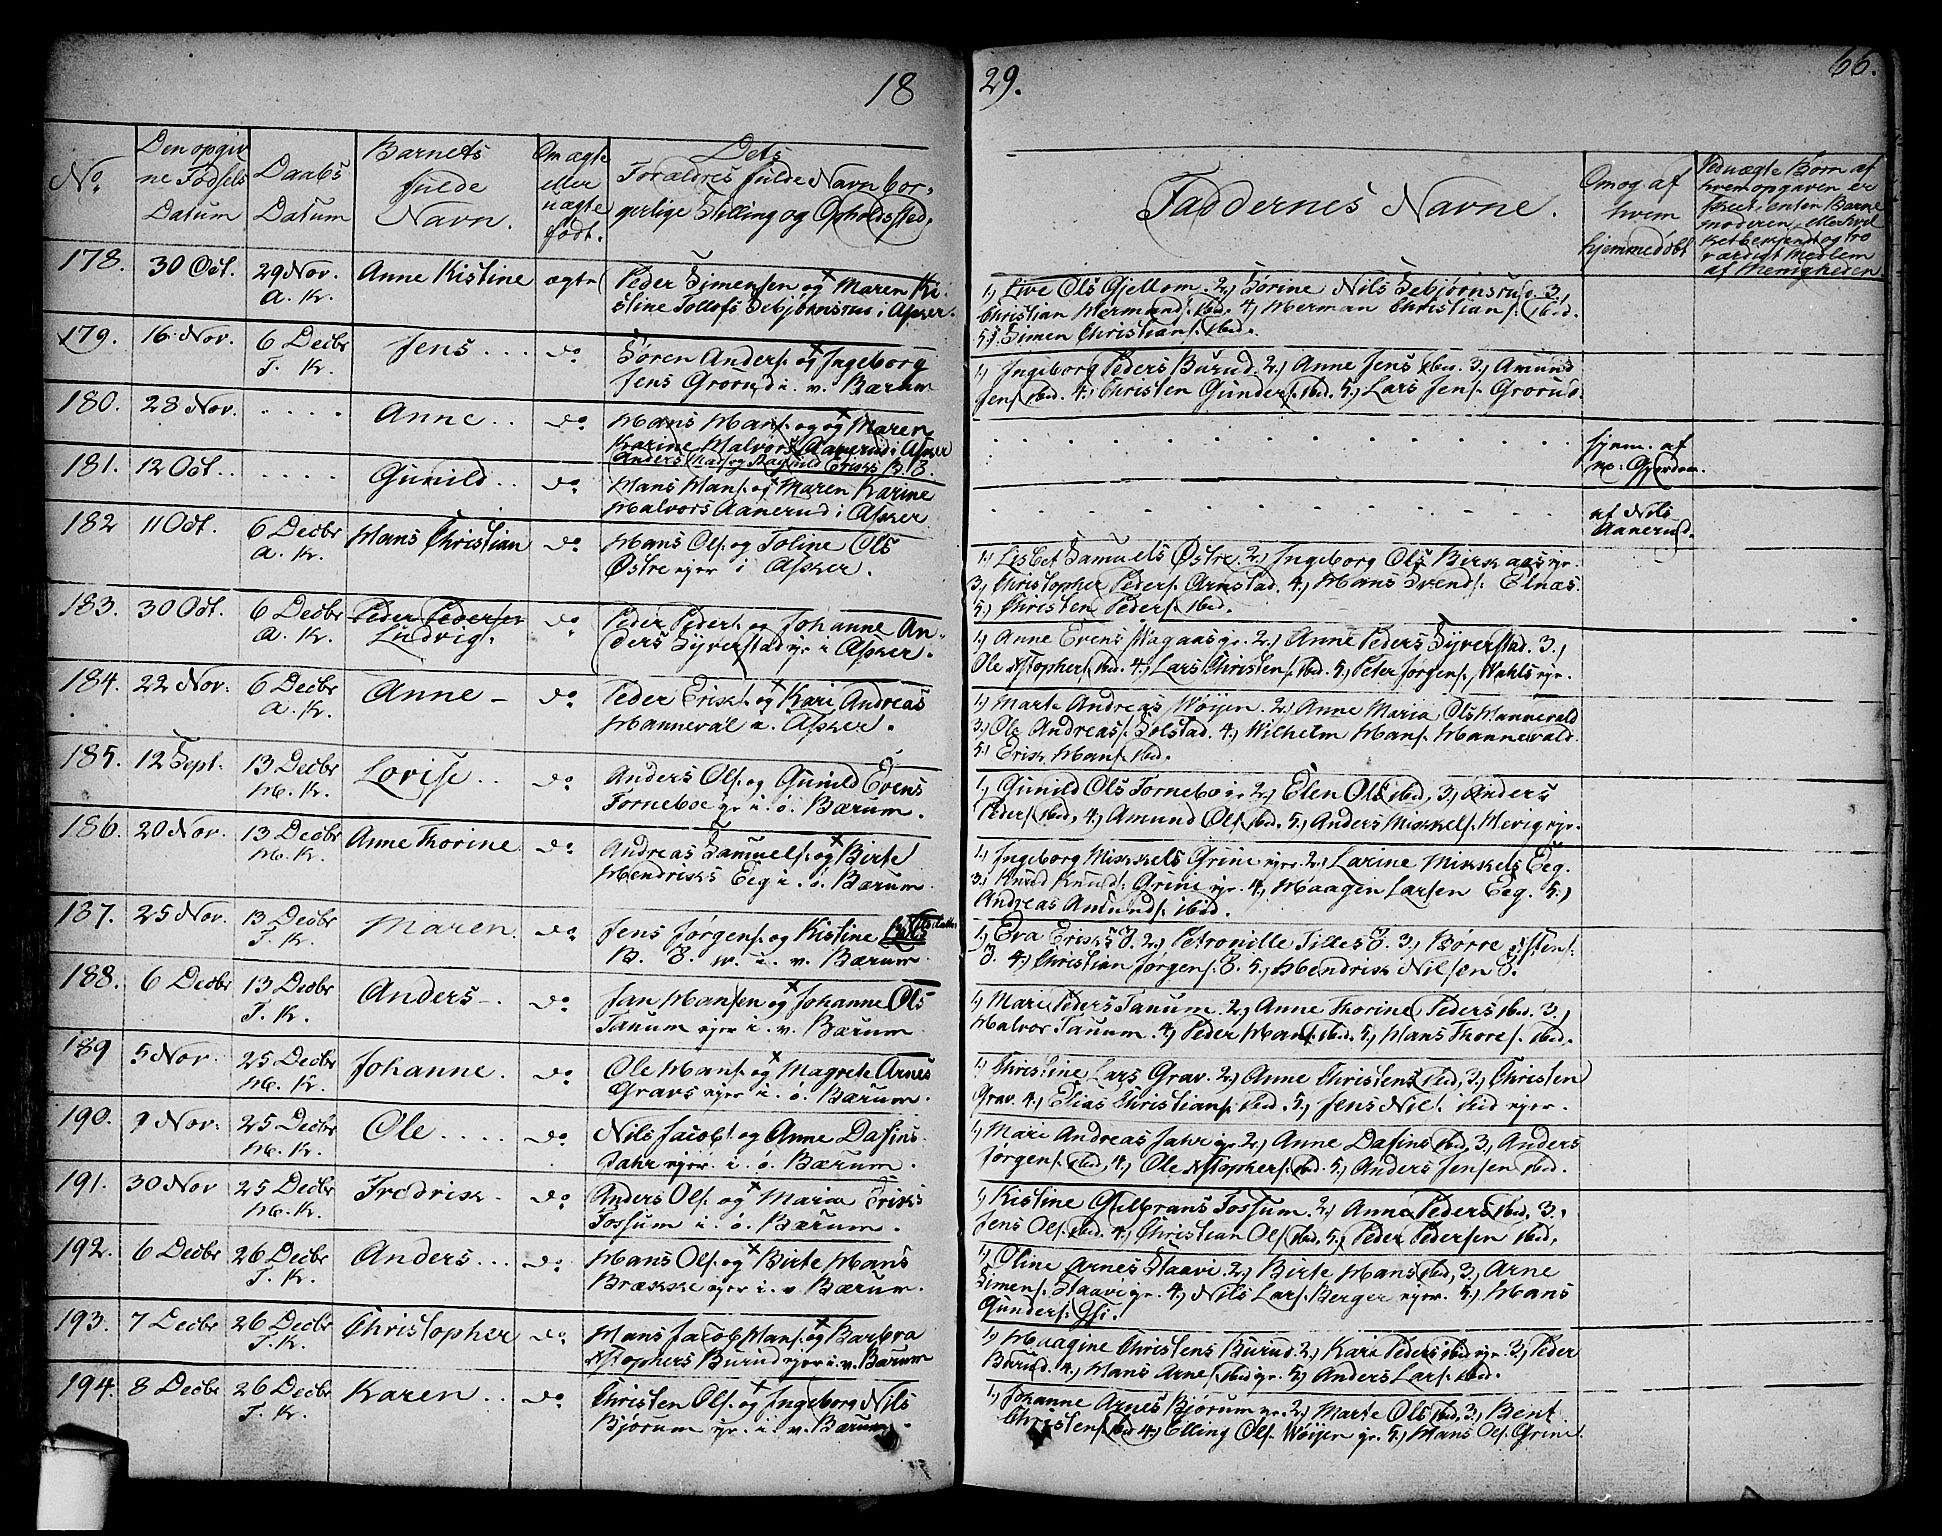 18
29.
66.
No.
Den opgiv
ne Fødsels
Datum
Daabs
Datum
Barnets
fulde
Navn.
Om ægte
eller
uægte
født.
Dets
Forældres fulde Navn bor-
gerlige Stilling og Opholdssted.
Faddernes Navne.
Om og af
hvem
hjemmedøbt
Ved uægte Børn af
hvem opgaven er
skeet, enten Barne
moderen, eller hvil
ket bekjendt og tro
værdigt Medlem
af Menigheden.
178. 30 Oct. 29 Nov. Anne Kistine ægte Peder Simensen og Maren Ki-
A. K. stine Tollofs Sebjørnsrud i Asker.
1, Live Ols Gjellom. 2, Sørine Nils Sebjørnsrud. 3,
Christian Hermands. ibid. 4, Herman Christians. ibid.
5, Simen Christians. ibid.
179. 16 Nov. 6 Decbr Jens ... do Søren Anders. og Ingeborg
T. K. Jens Grorud i. v. Bærum
1, Ingeborg Peders Burud. 2, Anne Jens ibid. 3, Amund
Jens. ibid. 4, Christen Gunders. ibid. 5, Lars Jens. Grorud.
180. 28 Nov. .... Anne .. do Hans Hans. og Maren
Karine Halvors Aanerud i Asker
Anders
hjem. af
181. 12 Oct. .... Gunild .. do Hans Hans. og Maren Karine
Halvors Aanerud i Asker
af Nils
Aanerud.
182 11 Oct. 6 Decbr Hans Christian do Hans Ols. og Toline Ols
A. K. Østre ejer i Asker.
1, Lisbet Samuels Østre. 2, Ingeborg Ols Birkaas ejr.
3, Christopher Peders. Arnstad. 4, Hans Svends. Elnæs.
5, Christen Peders. ibid.
183. 30 Oct. 6 Decbr Peder Pedersen do Peder Peders. og Johanne An-
A. K. Ludvig. ders Syverstad ejr i Asker.
1, Anne Evens Hagaas gr. 2, Anne Peders Syverstad. 3,
Ole Xstophers. ibid. 4, Lars Christens. ibid. 5, Peter Jørgens. Wahls ejr.
184. 22 Nov. 6 Decbr Anne - do Peder Eriks. og Kari Andreas
A. K. Manneval i. Asker.
1, Marte Andreas Wøijen. 2, Anne Maria Ols Mannevald
3, Ole Andreas. Solstad. 4, Wilhelm Hans. Mannevald.
5, Erik Hans. ibid.
185. 12 Sept. 13 Decbr Lovise .. do Anders Ols. og Gunild Evens
H. K. Torneboe gr i. ø. Bærum.
1, Gunild Ols Torneboe gr. 2, Elen Ols ibid, 3, Anders
Peders. ibid. 4, Amund Ols. ibid. 5, Anders Mikkels. Hevig ejr.
186. 20 Nov. 13 Decbr Anne Thorine do Andreas Samuels. og Birte
H. K. Hendriks Eeg i. ø. Bærum.
1, Ingeborg Mikkels Grine ejer. 2, Larine Mikkels Eeg.
3, Knud Knuds. Grini ejr. 4, Haagen Larsen Eeg. 5,
Andreas Amunds. ibid.
187. 25 Nov. 13 Decbr Maren. do Jens Jørgens. og Kistine
T. K. B. V. v. i. v. Bærum.
1, Eva Eriks V. 2, Petronille Tilles V. 3, Børre
V. 4, Christian Jørgens. V. 5, Hendrik Nilsen V.
188. 6 Decbr 13 Decbr Anders - do Jan Hansen og Johanne Ols
T. K. Tanum ejer i. v. Bærum.
1, Mari Peders Tanum. 2, Anne Thorine Peders ibid. 3,
Halvor Tanum. 4, Peder Hans. ibid. 5, Hans Thores. ibid.
189 5 Nov. 25 Decbr Johanne. do Ole Hans. og Magrete Arnes
H. K. Gravs ejer i. ø. Bærum.
1, Christine Lars Grav. 2, Anne Christens ibid, 3, Christen
Grav. 4, Elias Christians. ibid. 5, Jens Nils. ibid ejer.
190. 9 Nov. 25 Decbr Ole .... do Nils Jacobs. og Anne Dafins.
H. K. Jahr ejer. i. ø. Bærum.
1, Mari Andreas Jahr gr. 2, Anne Dafins ibid, 3, Anders
Jørgens. ibid, 4, Ole Xstophers. ibid. 5, Anders Jensen ibid.
191. 30 Nov 25 Decbr Fredrik - do Anders Ols. og Maria Eriks
H. K. Fossum i. ø. Bærum.
1, Kistine Gulbrans Fossum. 2, Anne Peders ibid, 3,
Jens Ols. ibid. 4, Christian Ols. ibid. 5, Peder Pedersen ibid.
192. 6 Decbr 26 Decbr Anders ... do Hans Ols. og Birte Hans
T. K. Brække ejer i. v Bærum.
1, Oline Arnes Staavi 2, Birte Hans ibid, 3, Arne
Simens. Staavi gr. 4, Nils Lars. Berger ejer. 5, Hans
Gunders.
193. 7 Decbr 26 Decbr Christopher do Hans Jacob Hans. og Barbra
T. K. Xstophers Burud ejer i. v. Bærum
1, Haagine Christens Burud. 2, Kari Peders ibid gr. 3, Peder
Burud. 4, Hans Arnes. ibid gr. 5, Anders Lars. ibid.
194. 8 Decbr 26 Decbr Karen .. do Christen Ols. og Ingeborg Nils
T. K. Bjørum gr. i. v. Bærum.
1, Johanne Arnes Bjørum gr. 2, Marte Ols ibid, 3, Bent
Christens. ibid 4, Elling Ols. Wøijen gr. 5, Hans Ols. Grini